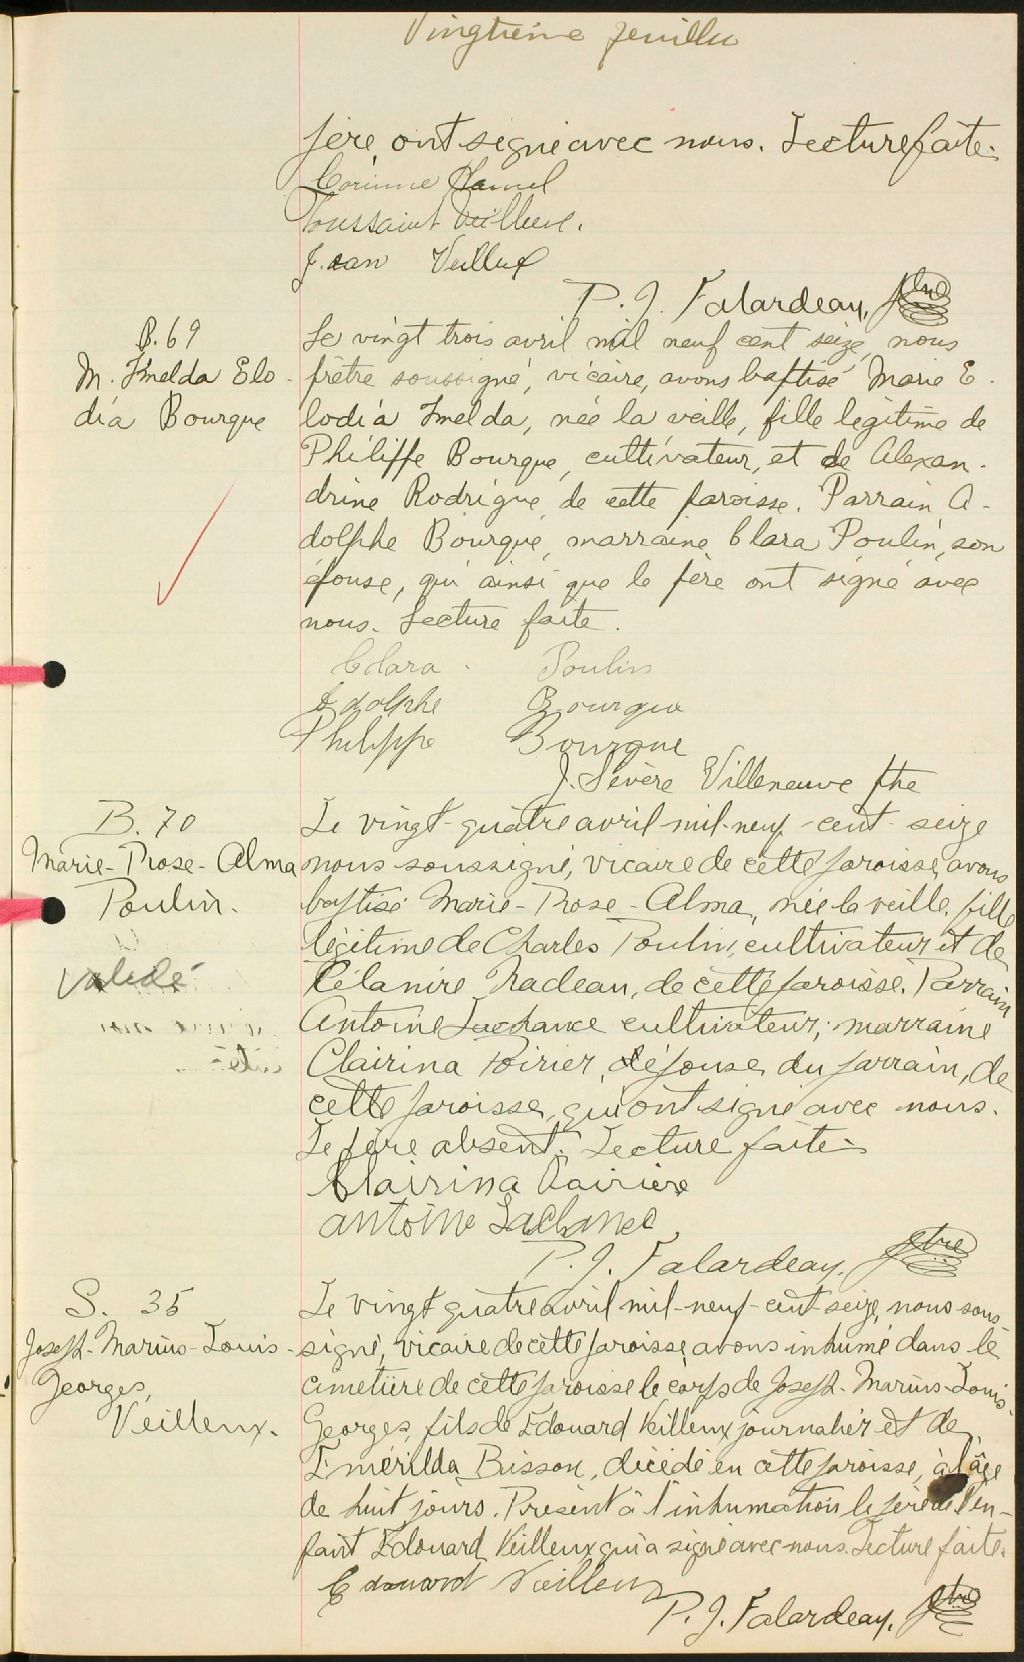 Vingtième feuillet
père ont signé avec nous. Lecture faite.
Corinne Hamel
Toussaint Veilleux.
Jean Veilleux
P. J. Falardeau, ptre
B. 69
M. Imelda Elo-
dia Bourque
Le vingt trois avril mil neuf cent seize, nous
prêtre soussigné, vicaire, avons baptisé Marie E-
lodia Imelda, née la veille, fille légitime de
Philippe Bourque, cultivateur, et de Alexan-
drine Rodrigue, de cette paroisse. Parrain, A-
dolphe Bourque, marraine Clara Poulin, son
épouse, qui ainsi que le père ont signé avec
nous. Lecture faite.
Clara Poulin
Adolphe Bourque
Philippe Bourque
J. Sévère Villeneuve ptre
B. 70
Marie-Rose-Alma
Poulin.
Validé
Le vingt-quatre avril mil-neuf-cent-seize
nous soussigné, vicaire de cette paroisse, avons
baptisé Marie-Rose-Alma, née la veille, fille
légitime de Charles Poulin, cultivateur et de
Célanire Nadeau, de cette paroisse. Parrain
Antoine Lachance cultivateur; marraine
Clairina Poirier, épouse du parrain, de
cette paroisse, qui ont signé avec nous.
Le père absent. Lecture faite.
Clairina Poiriere
Antoine Lachance
P. J. Falardeau, ptre
S. 35
Joseph-Marius-Louis-
Georges,
Veilleux.
Le vingt quatre avril mil-neuf-cent-seize, nous sous-
signé, vicaire de cette paroisse, avons inhumé dans le
cimetière de cette paroisse le corps de Joseph-Marius-Louis-
Georges, fils de Edouard Veilleux journalier et de
Emérilda Bisson, décédé en cette paroisse, à l'âge
de huit jours. Présent à l'inhumation le père de l'en-
fant Edouard Veilleux qui a signé avec nous. Lecture faite.
Edouard Veilleux
P. J. Falardeau, ptre